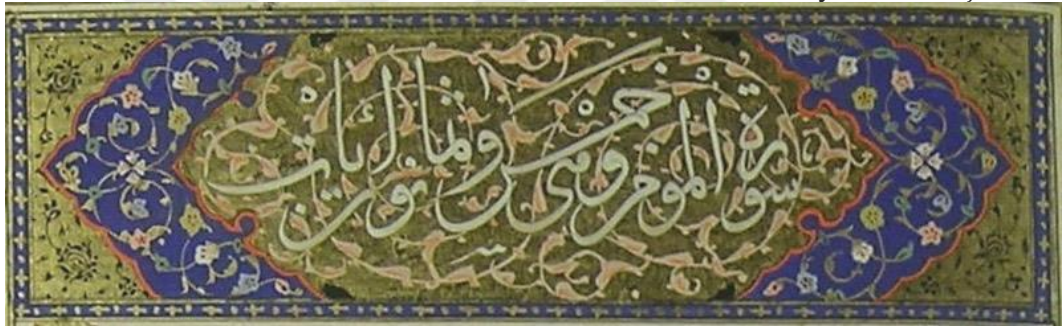 سورة المومن وهى خمس وثمانون ايات